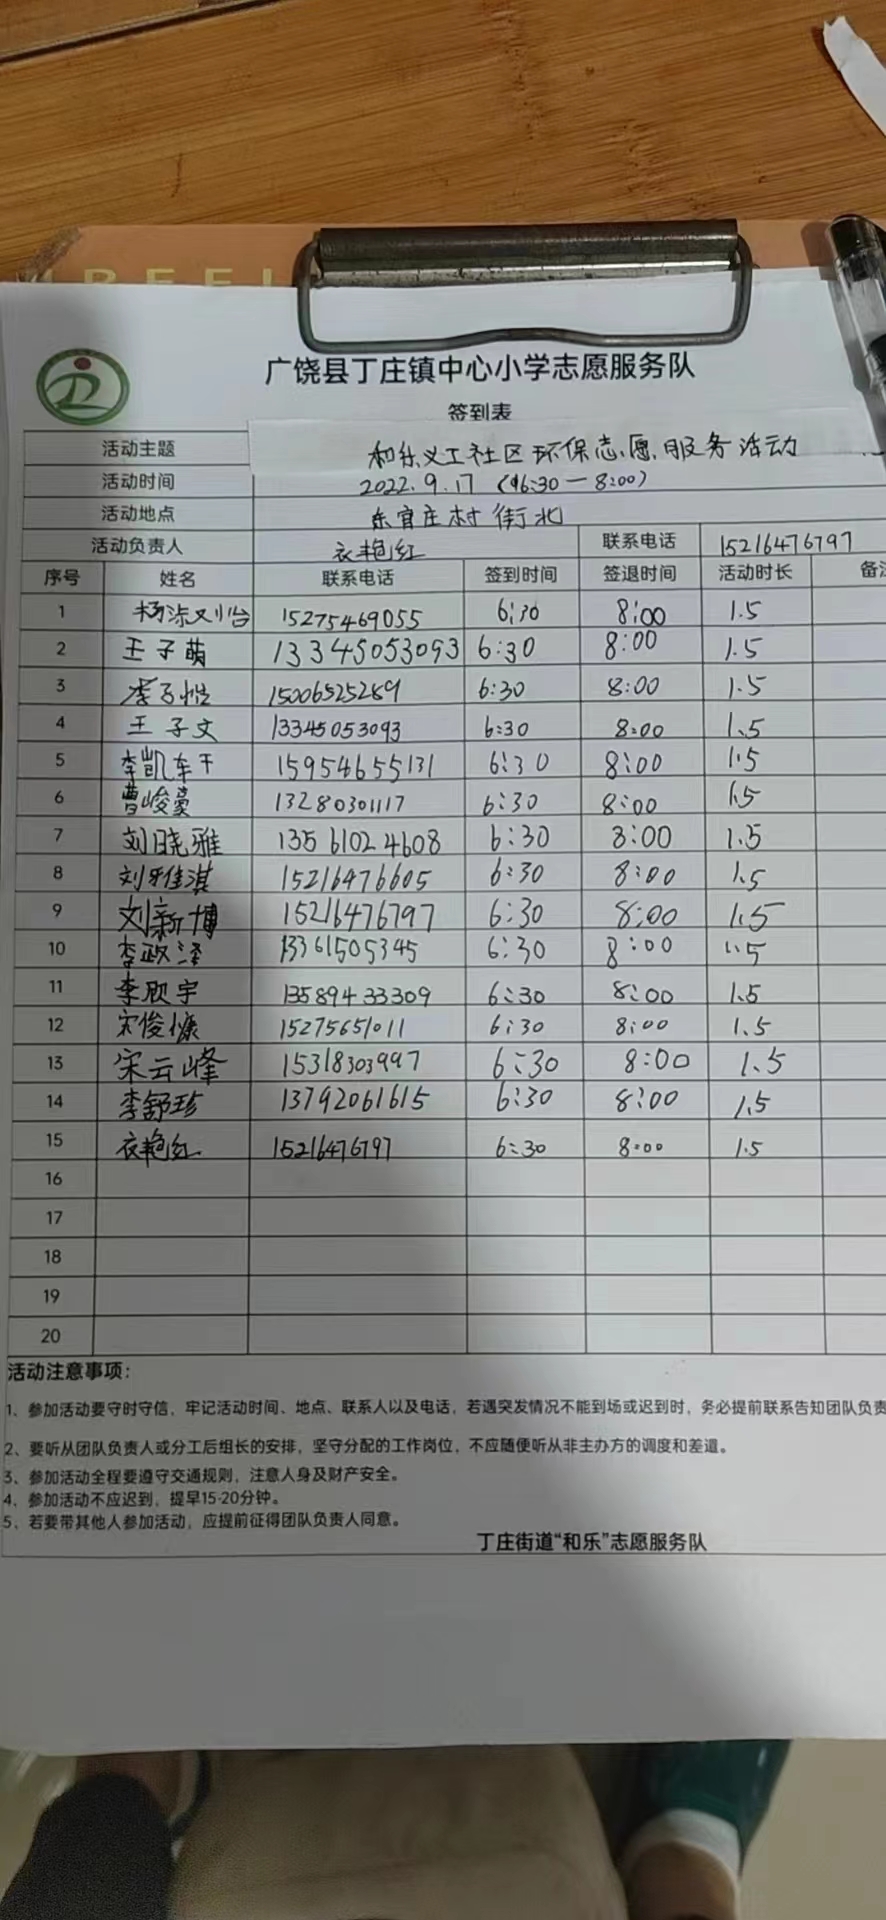 广饶县丁庄镇中心小学志愿服务队
签到表
活动主题 和乐义工社区环保志愿服务活动
活动时间 2022.9.17 (16:30—8:00)
活动地点 东官庄村街北
活动负责人 衣艳红 联系电话 15216476797
序号 姓名 联系电话 签到时间 签退时间 活动时长 备注
1 15275469055 6:30 8:00 1.5
2 王子萌 13345053093 6:30 8:00 1.5
3 15006525289 6:30 8:00 1.5
4 王子文 13345053093 6:30 8:00 1.5
5 李凯 15954655131 6:30 8:00 1.5
6 曹峻豪 13280301117 6:30 8:00 1.5
7 刘晓雅 13561024608 6:30 8:00 1.5
8 刘雅淇 15216476605 6:30 8:00 1.5
9 刘新博 15216476797 6:30 8:00 1.5
10 李政泽 13361505345 6:30 8:00 1.5
11 李欣宇 13589433309 6:30 8:00 1.5
12 宋俊慷 15275651011 6:30 8:00 1.5
13 宋云峰 15318303997 6:30 8:00 1.5
14 李舒珍 13792061615 6:30 8:00 1.5
15 衣艳红 15216476797 6:30 8:00 1.5
16
17
18
19
20
活动注意事项:
1、参加活动要守时守信，牢记活动时间、地点、联系人以及电话，若遇突发情况不能到场或迟到时，务必提前联系告知团队负责
2、要听从团队负责人或分工后组长的安排，坚守分配的工作岗位，不应随便听从非主办方的调度和差遣。
3、参加活动全程要遵守交通规则，注意人身及财产安全。
4、参加活动不应迟到，提早15-20分钟。
5、若要带其他人参加活动，应提前征得团队负责人同意。
丁庄街道“和乐”志愿服务队